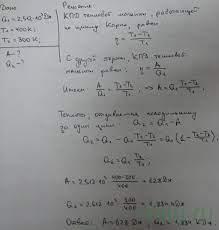 Дано
Q₁ = 2,512·10³ Дж
T₁ = 400 К;
T₂ = 300 К;
A - ?
Q₂ - ?
Решение:
КПД тепловой машины, работающей
по циклу Карно, равен
η = (T₁ - T₂)/T₁
С другой стороны, КПД тепловой
машины равен: η = A/Q₁
Имеем A/Q₁ = (T₁ - T₂)/T₁ ⇒ A = Q₁ (T₁ - T₂)/T₁
Теплота, отдаваемая холодильнику
за один цикл: Q₂ = Q₁ - A
Q₂ = Q₁ - Q₁ (T₁ - T₂)/T₁ = Q₁ (1 - (T₁ - T₂)/T₁)
Q₂ = Q₁ T₂/T₁
A = 2,512·10³ (400 - 300)/400 = 628 Дж
Q₂ = 2,512·10³ 300/400 = 1,884 кДж
Ответ: A = 628 Дж, Q₂ = 1,884 кДж